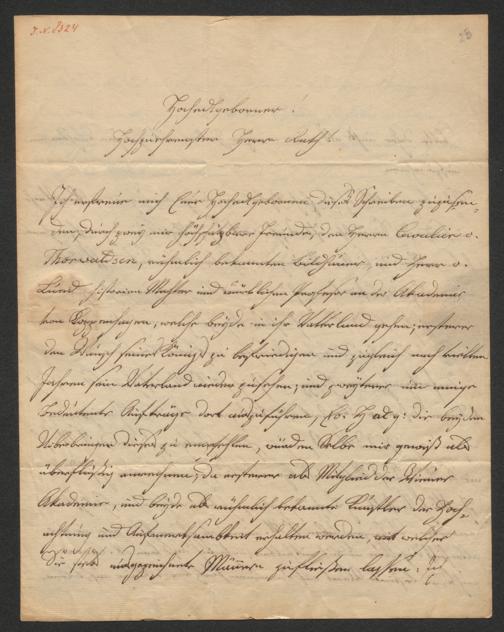 I.N. 8324
23
Hochedlgeborner!
Hochzuverehrender Herr Rath!
Ich erfreue mich Euer Hochedlgeboren dieses Schreiben zuzusen-
den, durch zwey mir schätzbare Freunde, den Herrn Cavalier v.
Thorwaldsen, rühmlich bekannten Bildhauer, und Herr v.
Lund, Historien Mahler und würklichen Professor an der Akademie
von Koppenhagen, welche beyde in ihr Vatterland gehen; ersterer
den Wunsch seines Königs zu befriedigen und zugleich nach vielen
Jahren sein Vaterland wieder zu sehen; und zweyterer um einige
bedeutende Aufträge dort auszuführen, die beyden
Überbringer dieses zu empfehlen, würden Selbe mir gewiß als
überflüßig anrechnen, da ersterer als Mitglied der Wiener
Akademie, und beyde als rühmlich bekannte Künstler der Hoch-
achtung und Aufmerksamkeit erhalten werden, mit welcher
Sie stets ausgezeichnete Männern zufließen lassen. Ich